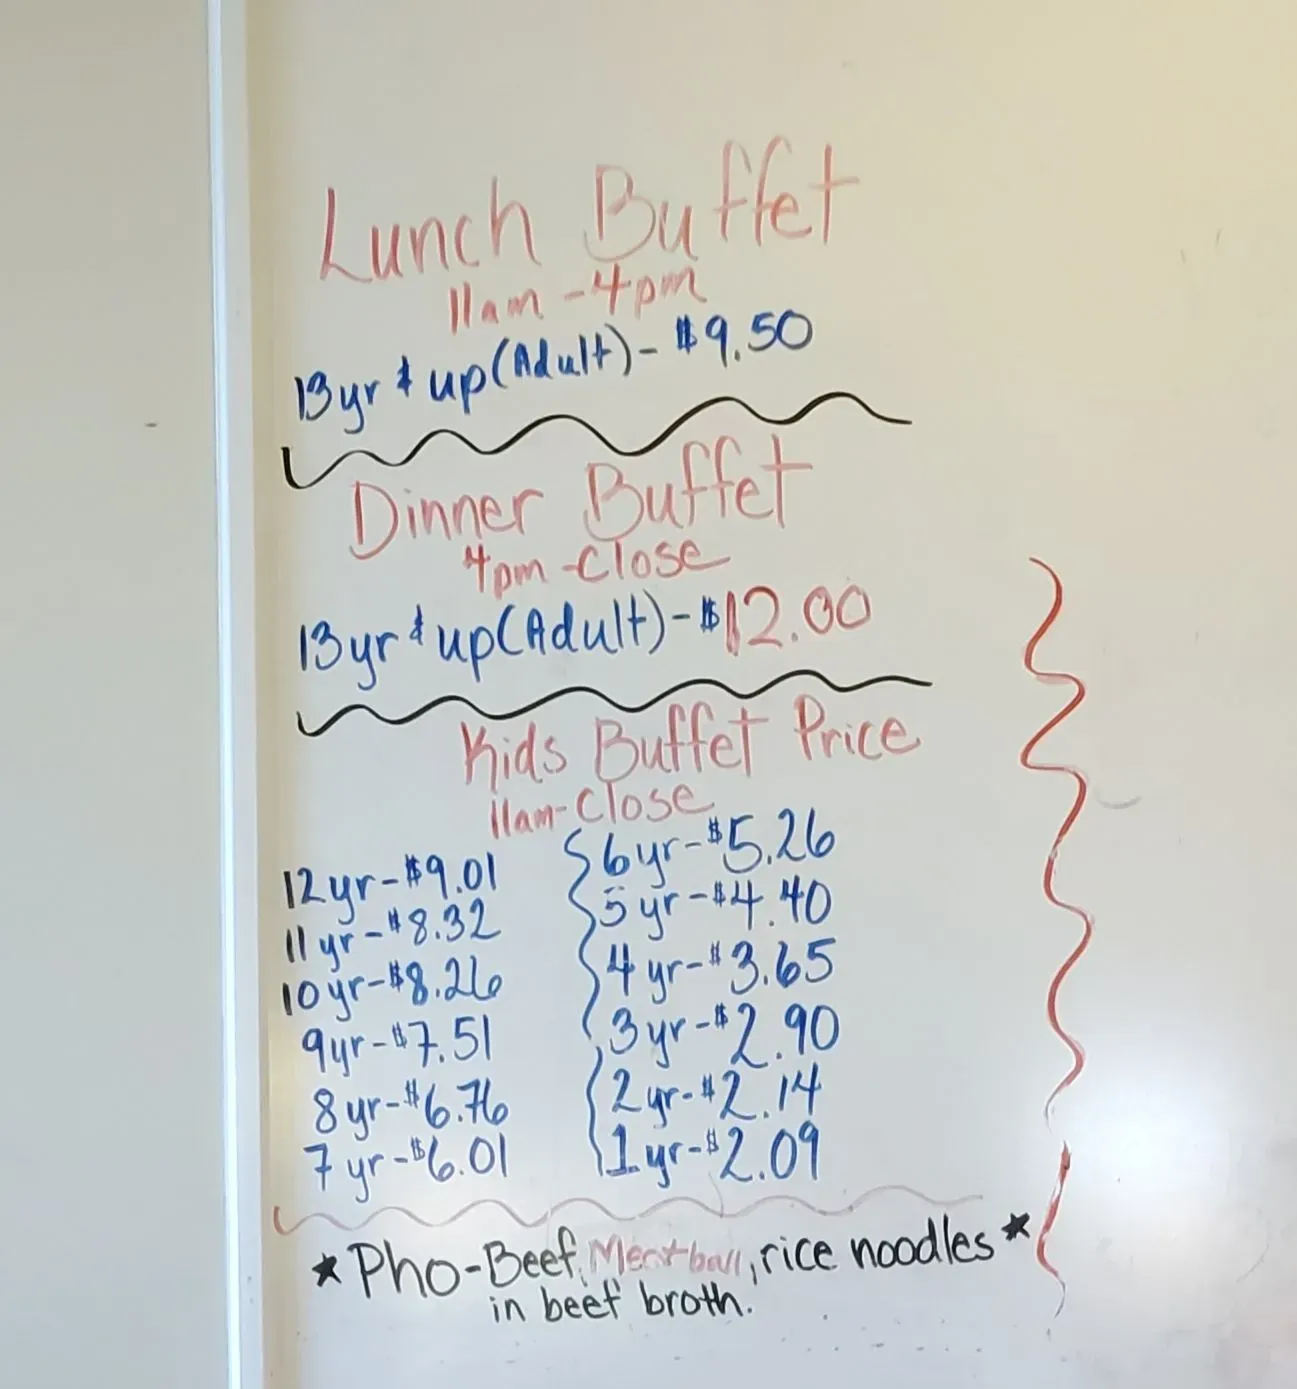 Lunch Buffet
11am - 4pm
13yr & up (Adult) - $9.50
Dinner Buffet
4pm - Close
13yr & up (Adult) - $12.00
Kids Buffet Price
11am - Close
12yr - $9.01
11yr - $8.32
10yr - $8.26
9yr - $7.51
8yr - $6.76
7yr - $6.01
6yr - $5.26
5yr - $4.40
4yr - $3.65
3yr - $2.90
2yr - $2.14
1yr - $2.09
★ Pho - Beef, Meatball, rice noodles ★
in beef broth.